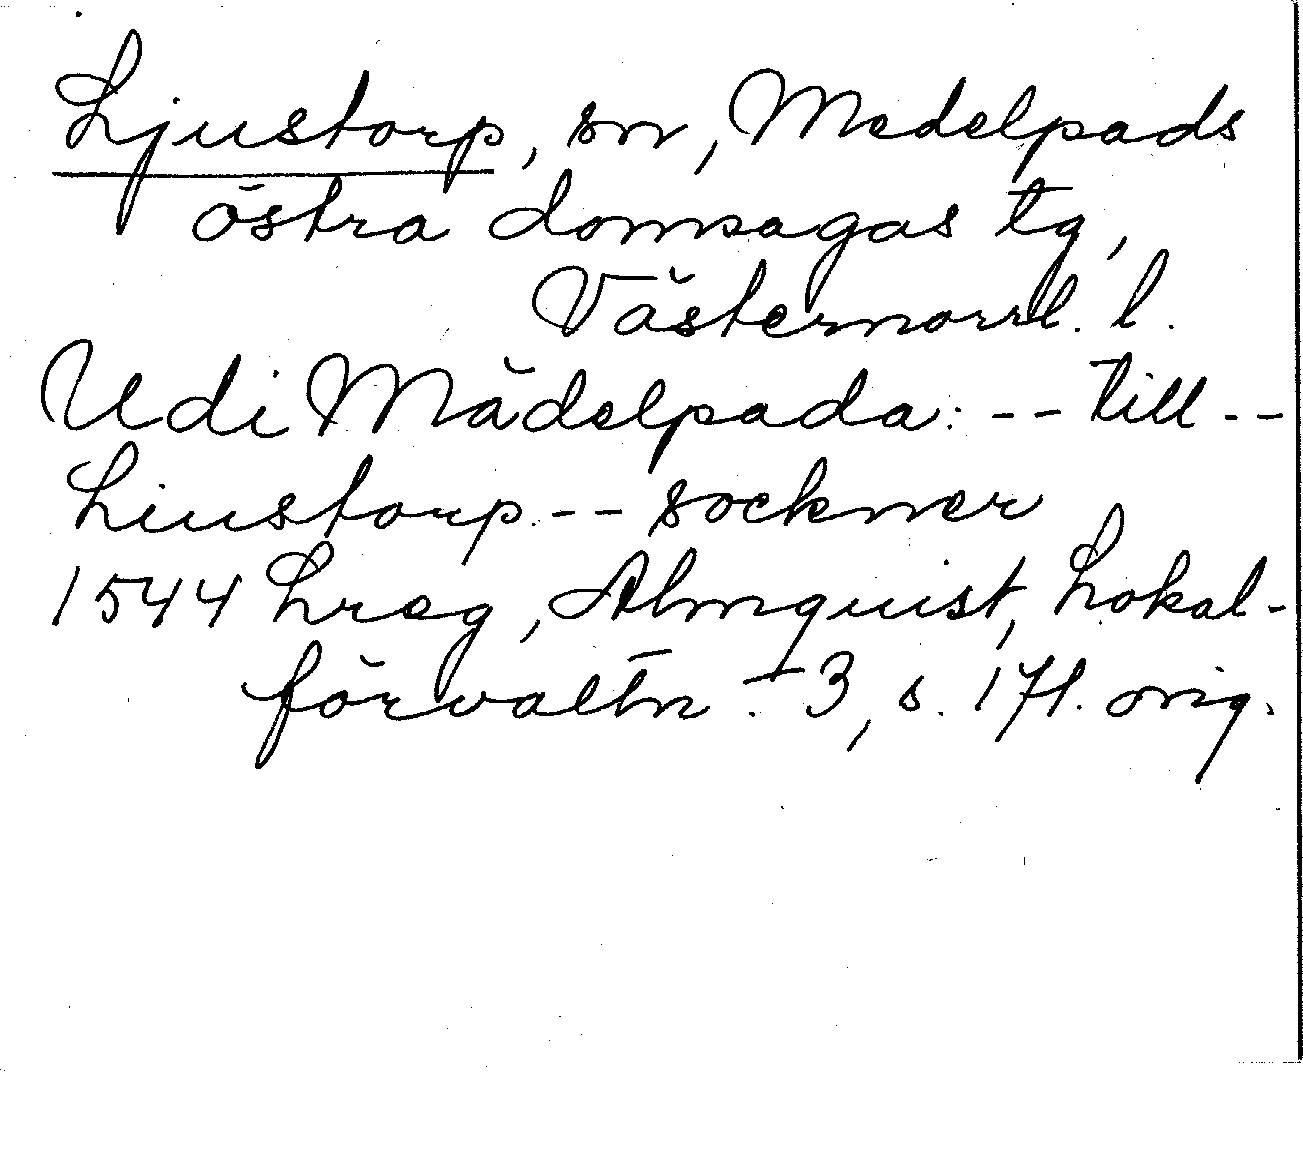 Ljustorp, sn, Medelpads
östra domsagas tg,
Västernorrl. l.
Udi Mädelpada: -- till --
Liustorp. -- sockner
1544 Lreg, Almquist, Lokal-
förvaltn. 3, s. 171. orig.